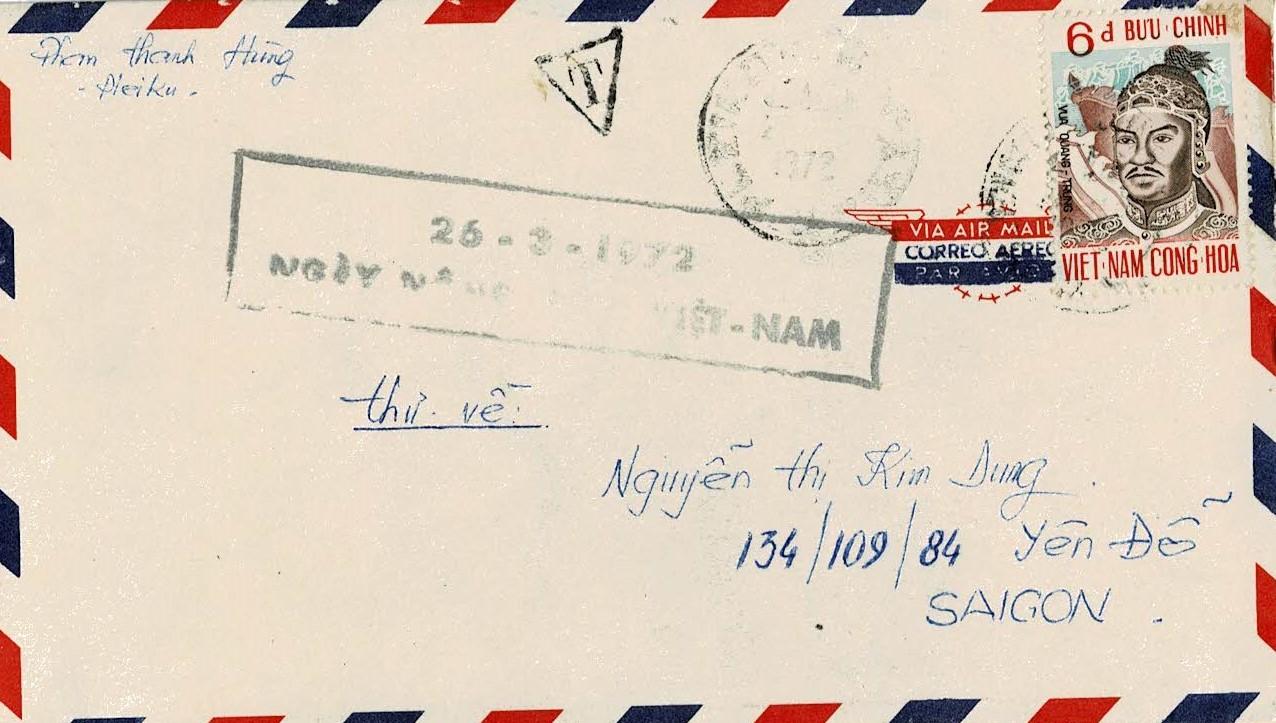 Phạm Thanh Hùng
- Pleiku -
T
1972
6đ BƯU·CHÍNH
VUA QUANG-TRUNG
VIỆT·NAM CỘNG·HÒA
VIA AIR MAIL
CORREO AEREO
PAR AVION
26-3-1972
NGÀY NÔNG VIỆT-NAM
thư về:
Nguyễn thị Kim Dung.
134/109/84 Yên Đỗ
SAIGON.